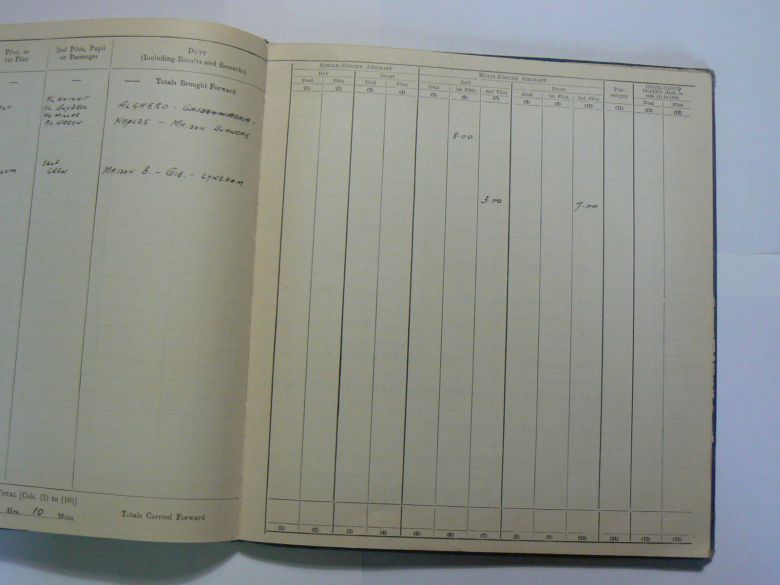 Pilot, or
1st Pilot
2nd Pilot, Pupil
or Passenger
DUTY
(Including Results and Remarks)
— — —— Totals Brought Forward
FL KNIGHT
ALGHERO -
PO GREEN
NAPLES - MAISON BLANCHE
SELF
CREW
MAISON B. - GIB. - LYNEHAM
TOTAL [Cols. (1) to (10)]
Hrs. 10 Mins.
Totals Carried Forward
SINGLE-ENGINE AIRCRAFT
MULTI-ENGINE AIRCRAFT
DAY
NIGHT
DAY
NIGHT
Pas-
senger
Dual
Pilot
Dual
Pilot
Dual
1st Pilot
2nd Pilot
Dual
1st Pilot
2nd Pilot
Dual
Pilot
(1) (2) (3) (4) (5) (6) (7) (8) (9) (10) (11) (12) (13)
8.00
3.00 7.00
(1) (2) (3) (4) (5) (6) (7) (8) (9) (10) (11) (12) (13)